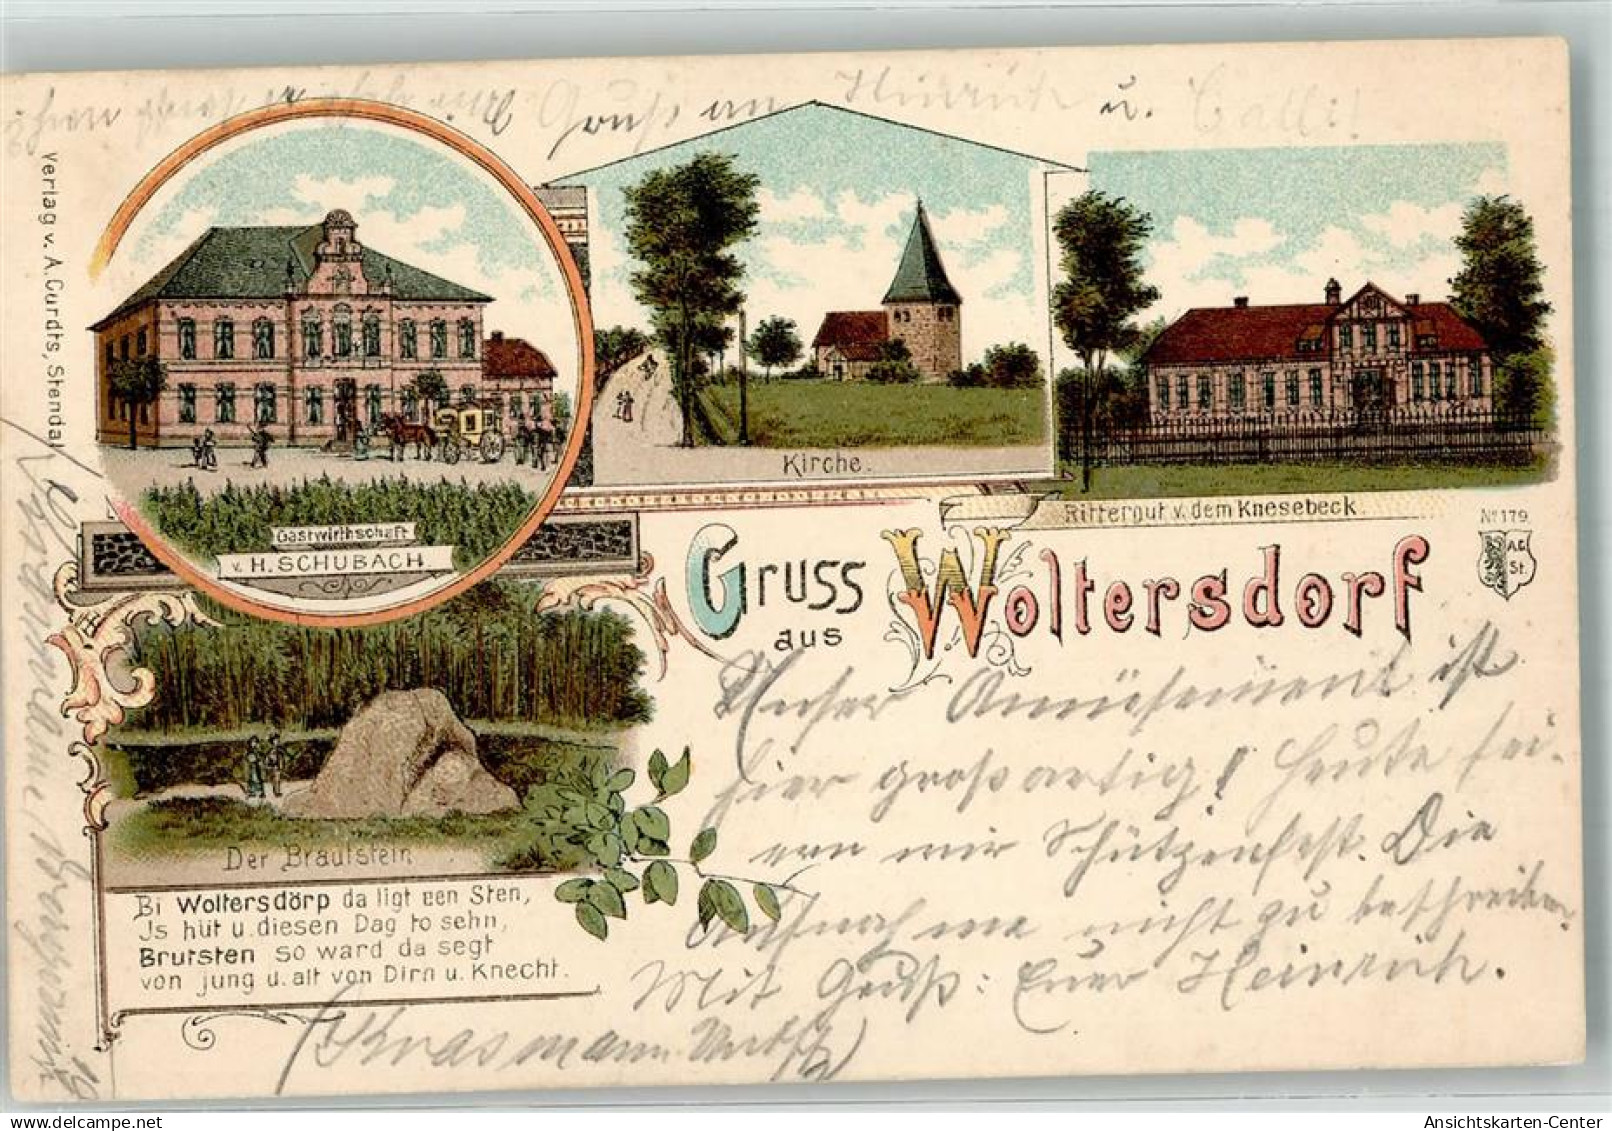 Gruß an Heinrich u.
Verlag v. A. Curdts, Stendal
Gastwirthschaft
v. H. SCHUBACH.
Kirche.
Rittergut v. dem Knesebeck.
No 179.
A.C.
St.
Gruss
aus
Woltersdorf
Der Brautstein
Bi Woltersdörp da ligt een Sten,
Js hüt u. diesen Dag to sehn,
Brutsten so ward da segt
von jung u. alt von Dirn u. Knecht.
Unser Amüsement ist
hier großartig! Heute fei-
ern wir Schützenfest. Die
Aufnahme nicht zu beschreiben.
Mit Gruß: Euer Heinrich.
Ansichtskarten-Center
delcampe.net
www.Ansichtskarten-Center.com